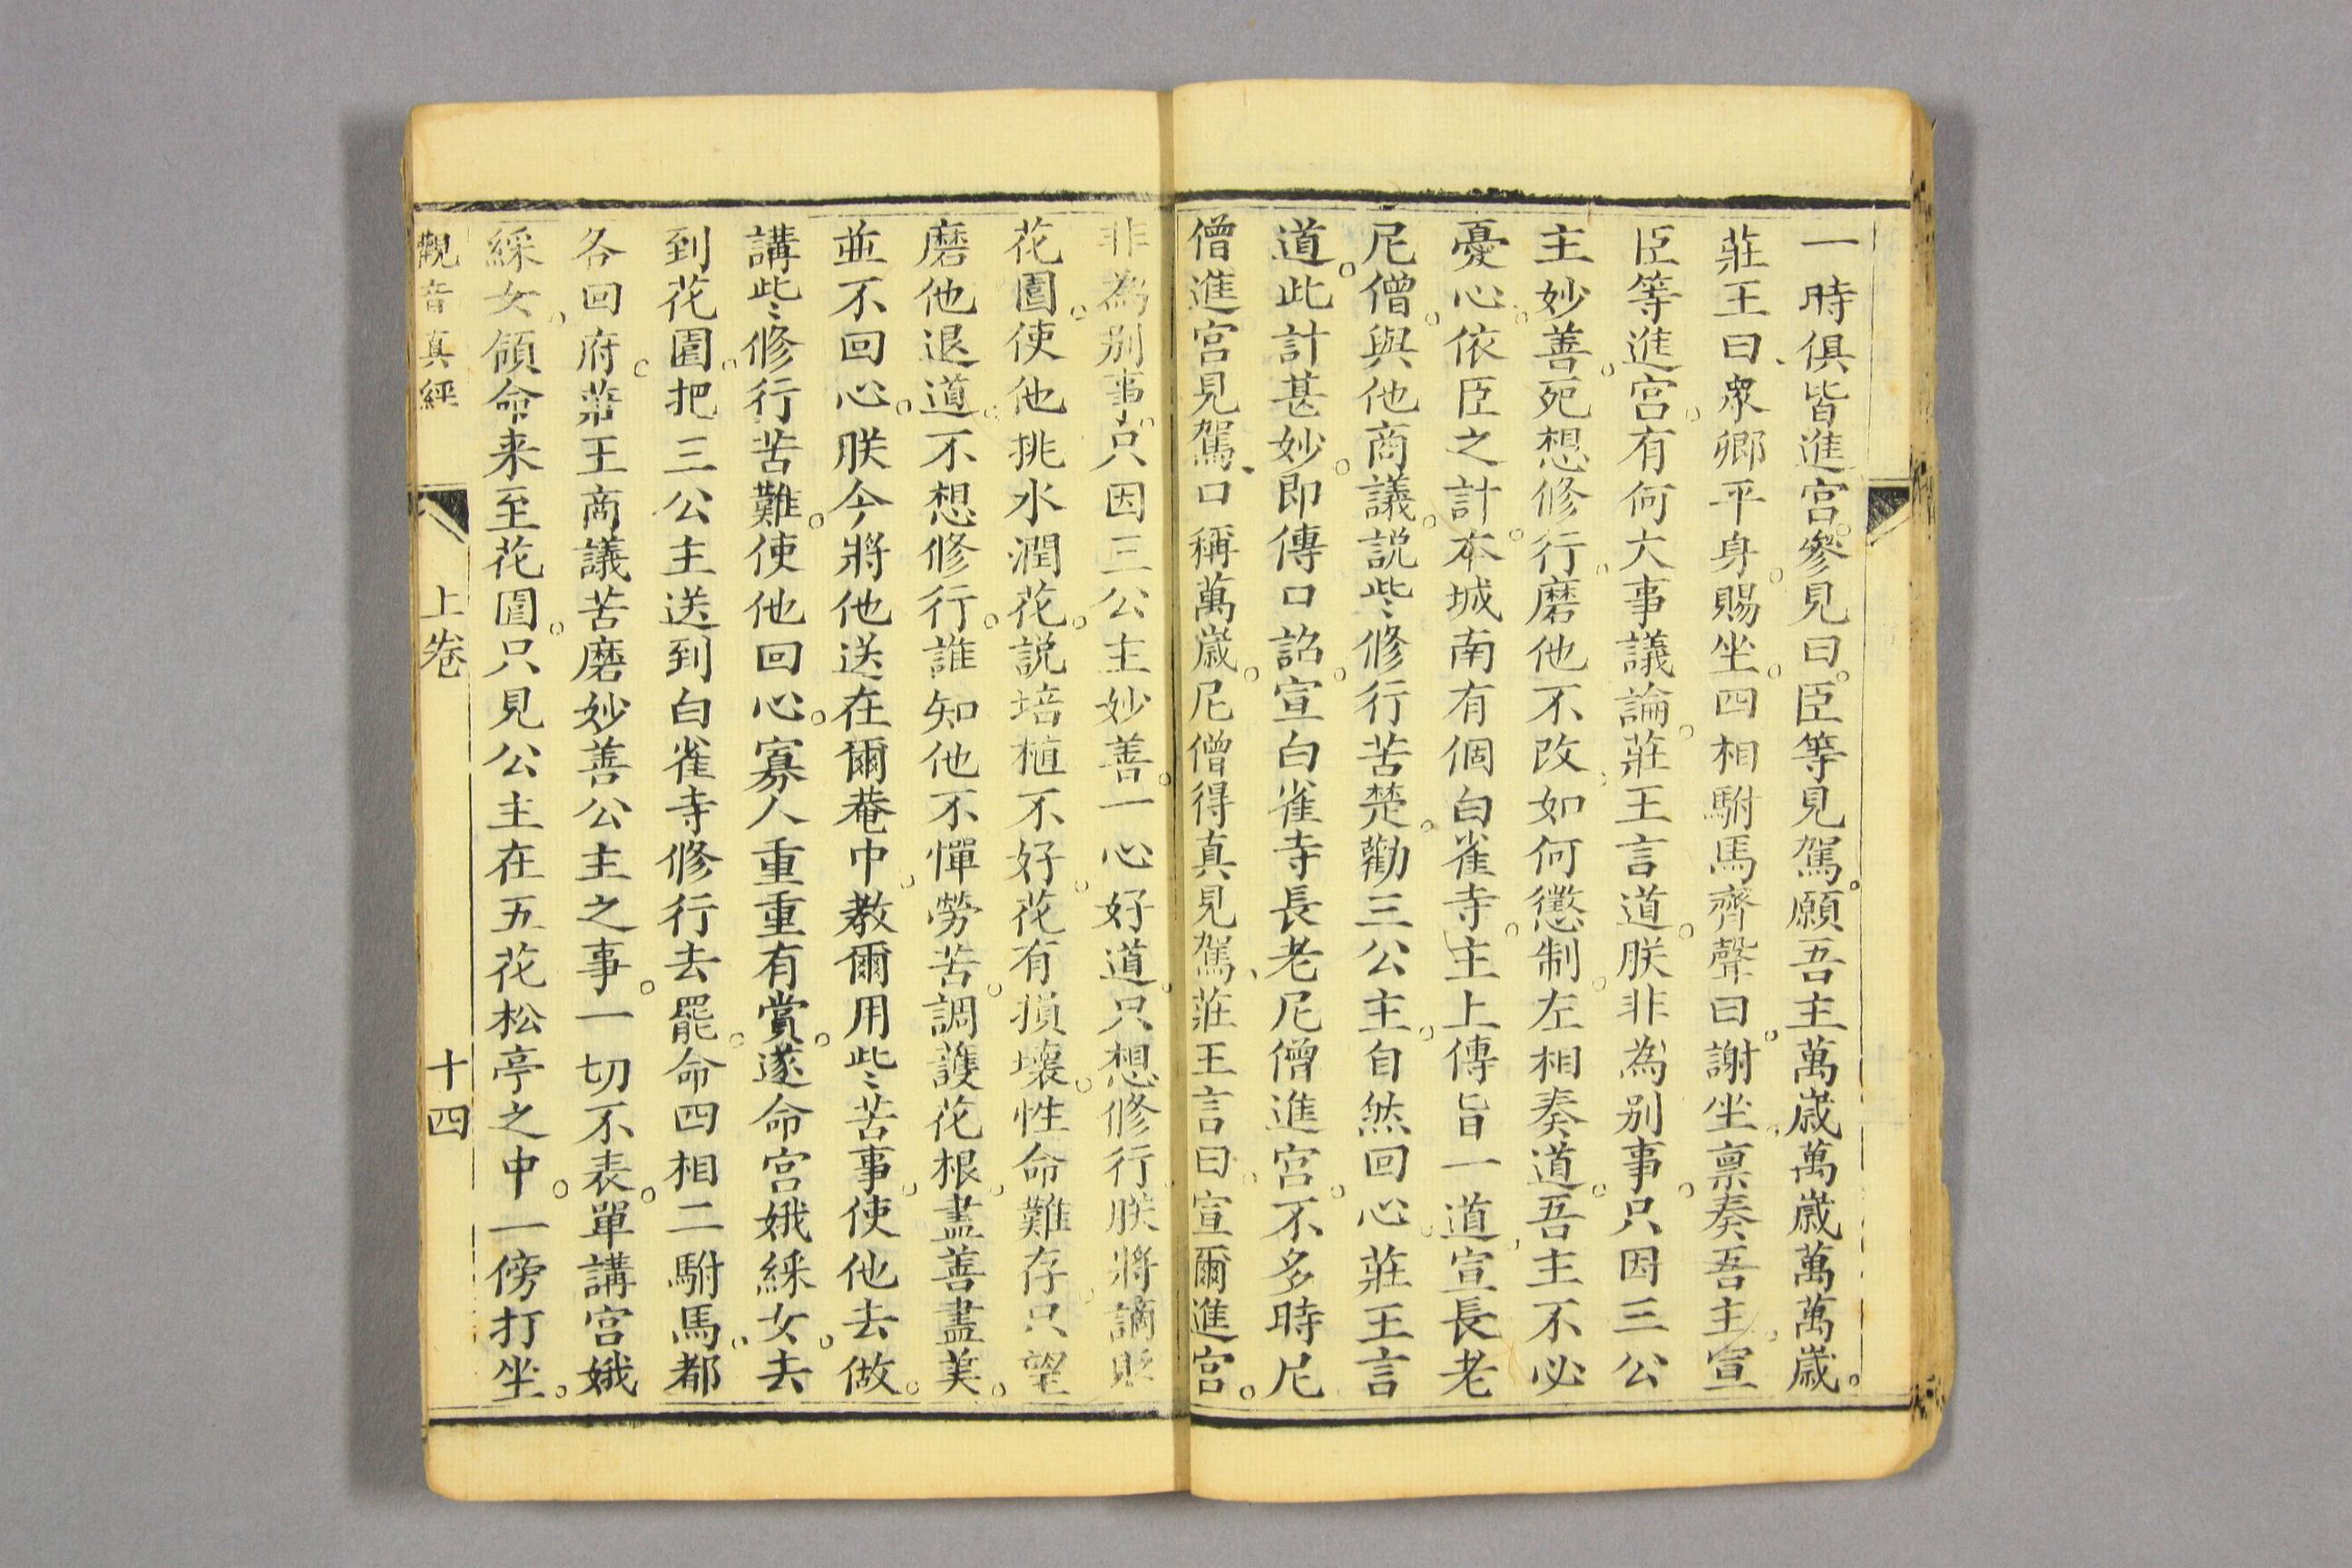 一時俱皆進宮。參見曰。臣等見駕。願吾主萬歲萬歲萬萬歲。
莊王曰、衆卿平身。賜坐。四相駙馬齊聲曰。謝坐。稟奏吾主。宣
臣等進宮。有何大事議論。莊王言道。朕非為别事。只因三公
主妙善。死想修行。磨他不改。如何懲制。左相奏道。吾主不必
憂心。依臣之計。本城南有個白雀寺。主上傳旨一道。宣長老
尼僧。與他商議。説些〻修行苦楚。勸三公主。自然回心。莊王言
道。此計甚妙。即傳口詔。宣白雀寺長老尼僧進宮。不多時尼
僧進宮見駕、口稱萬歲。尼僧得真見駕、莊王言曰。宣爾進宮。
非為别事。只因三公主妙善。一心好道。只想修行。朕將謫貶
花園。使他挑水潤花。説培植不好。花有損壞。性命難存。只望
磨他退道。不想修行。誰知他不憚勞苦。調護花根。盡善盡美。
並不回心。朕今將他送在爾菴中。教爾用些〻苦事。使他去做。
講些〻修行苦難。使他回心。寡人重重有賞。遂命宮娥綵女。去
到花園。把三公主送到白雀寺修行去罷。命四相二駙馬。都
各回府。莊王商議苦磨妙善公主之事。一切不表。單講宮娥
綵女。領命来至花園。只見公主在五花松亭之中。一傍打坐。
觀音真經 上卷 十四